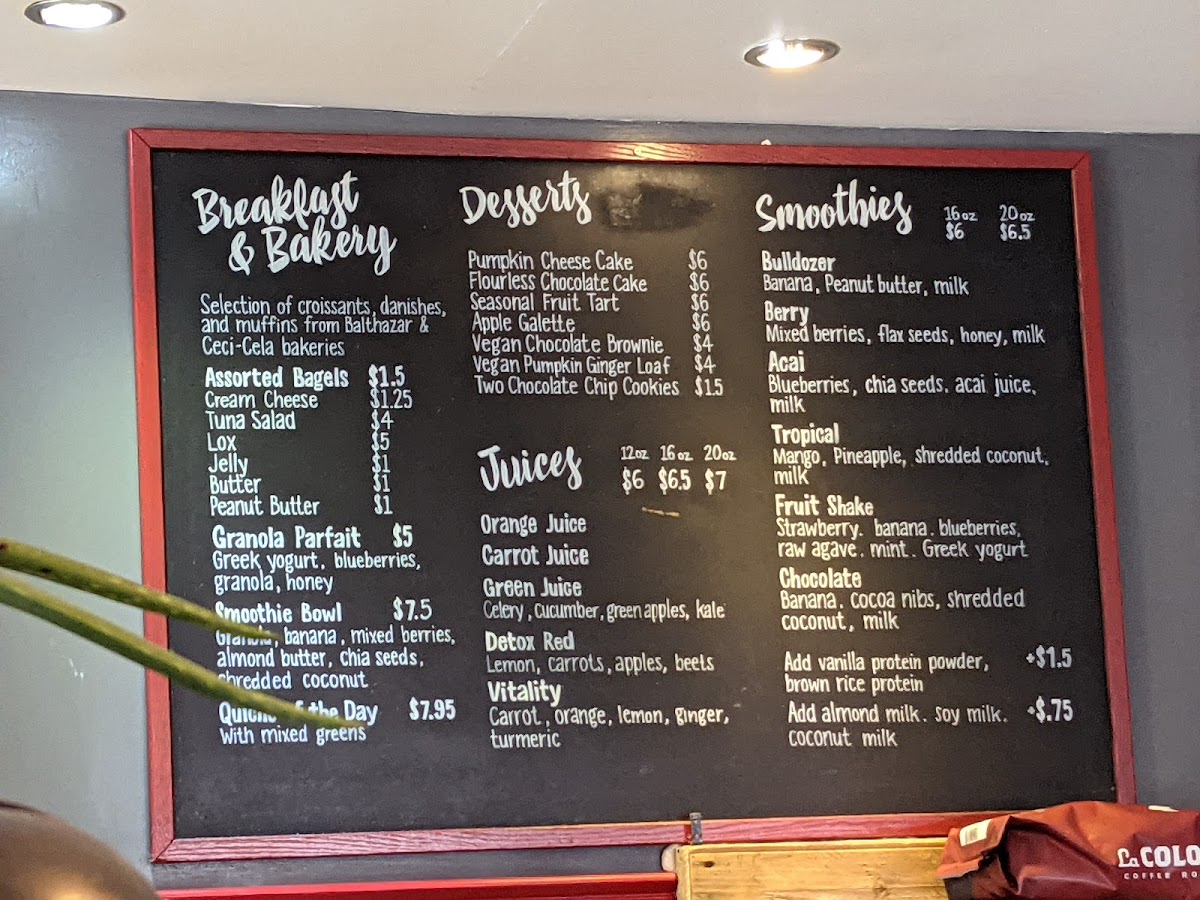 Breakfast
& Bakery
Selection of croissants, danishes,
and muffins from Balthazar &
Ceci-Cela bakeries
Assorted Bagels $1.5
Cream Cheese $1.25
Tuna Salad $4
Lox $5
Jelly $1
Butter $1
Peanut Butter $1
Granola Parfait $5
Greek yogurt, blueberries,
granola, honey
Smoothie Bowl $7.5
Granola, banana, mixed berries,
almond butter, chia seeds,
shredded coconut
Quiche of the Day $7.95
With mixed greens
Desserts
Pumpkin Cheese Cake $6
Flourless Chocolate Cake $6
Seasonal Fruit Tart $6
Apple Galette $6
Vegan Chocolate Brownie $4
Vegan Pumpkin Ginger Loaf $4
Two Chocolate Chip Cookies $1.5
Juices 12oz 16oz 20oz
$6 $6.5 $7
Orange Juice
Carrot Juice
Green Juice
Celery, cucumber, green apples, kale
Detox Red
Lemon, carrots, apples, beets
Vitality
Carrot, orange, lemon, ginger,
turmeric
Smoothies 16oz 20oz
$6 $6.5
Bulldozer
Banana, Peanut butter, milk
Berry
Mixed berries, flax seeds, honey, milk
Acai
Blueberries, chia seeds. acai juice,
milk
Tropical
Mango, Pineapple, shredded coconut,
milk
Fruit Shake
Strawberry. banana. blueberries,
raw agave. mint. Greek yogurt
Chocolate
Banana. cocoa nibs, shredded
coconut, milk
Add vanilla protein powder, +$1.5
brown rice protein
Add almond milk. soy milk. +$.75
coconut milk
La COLO
COFFEE RO